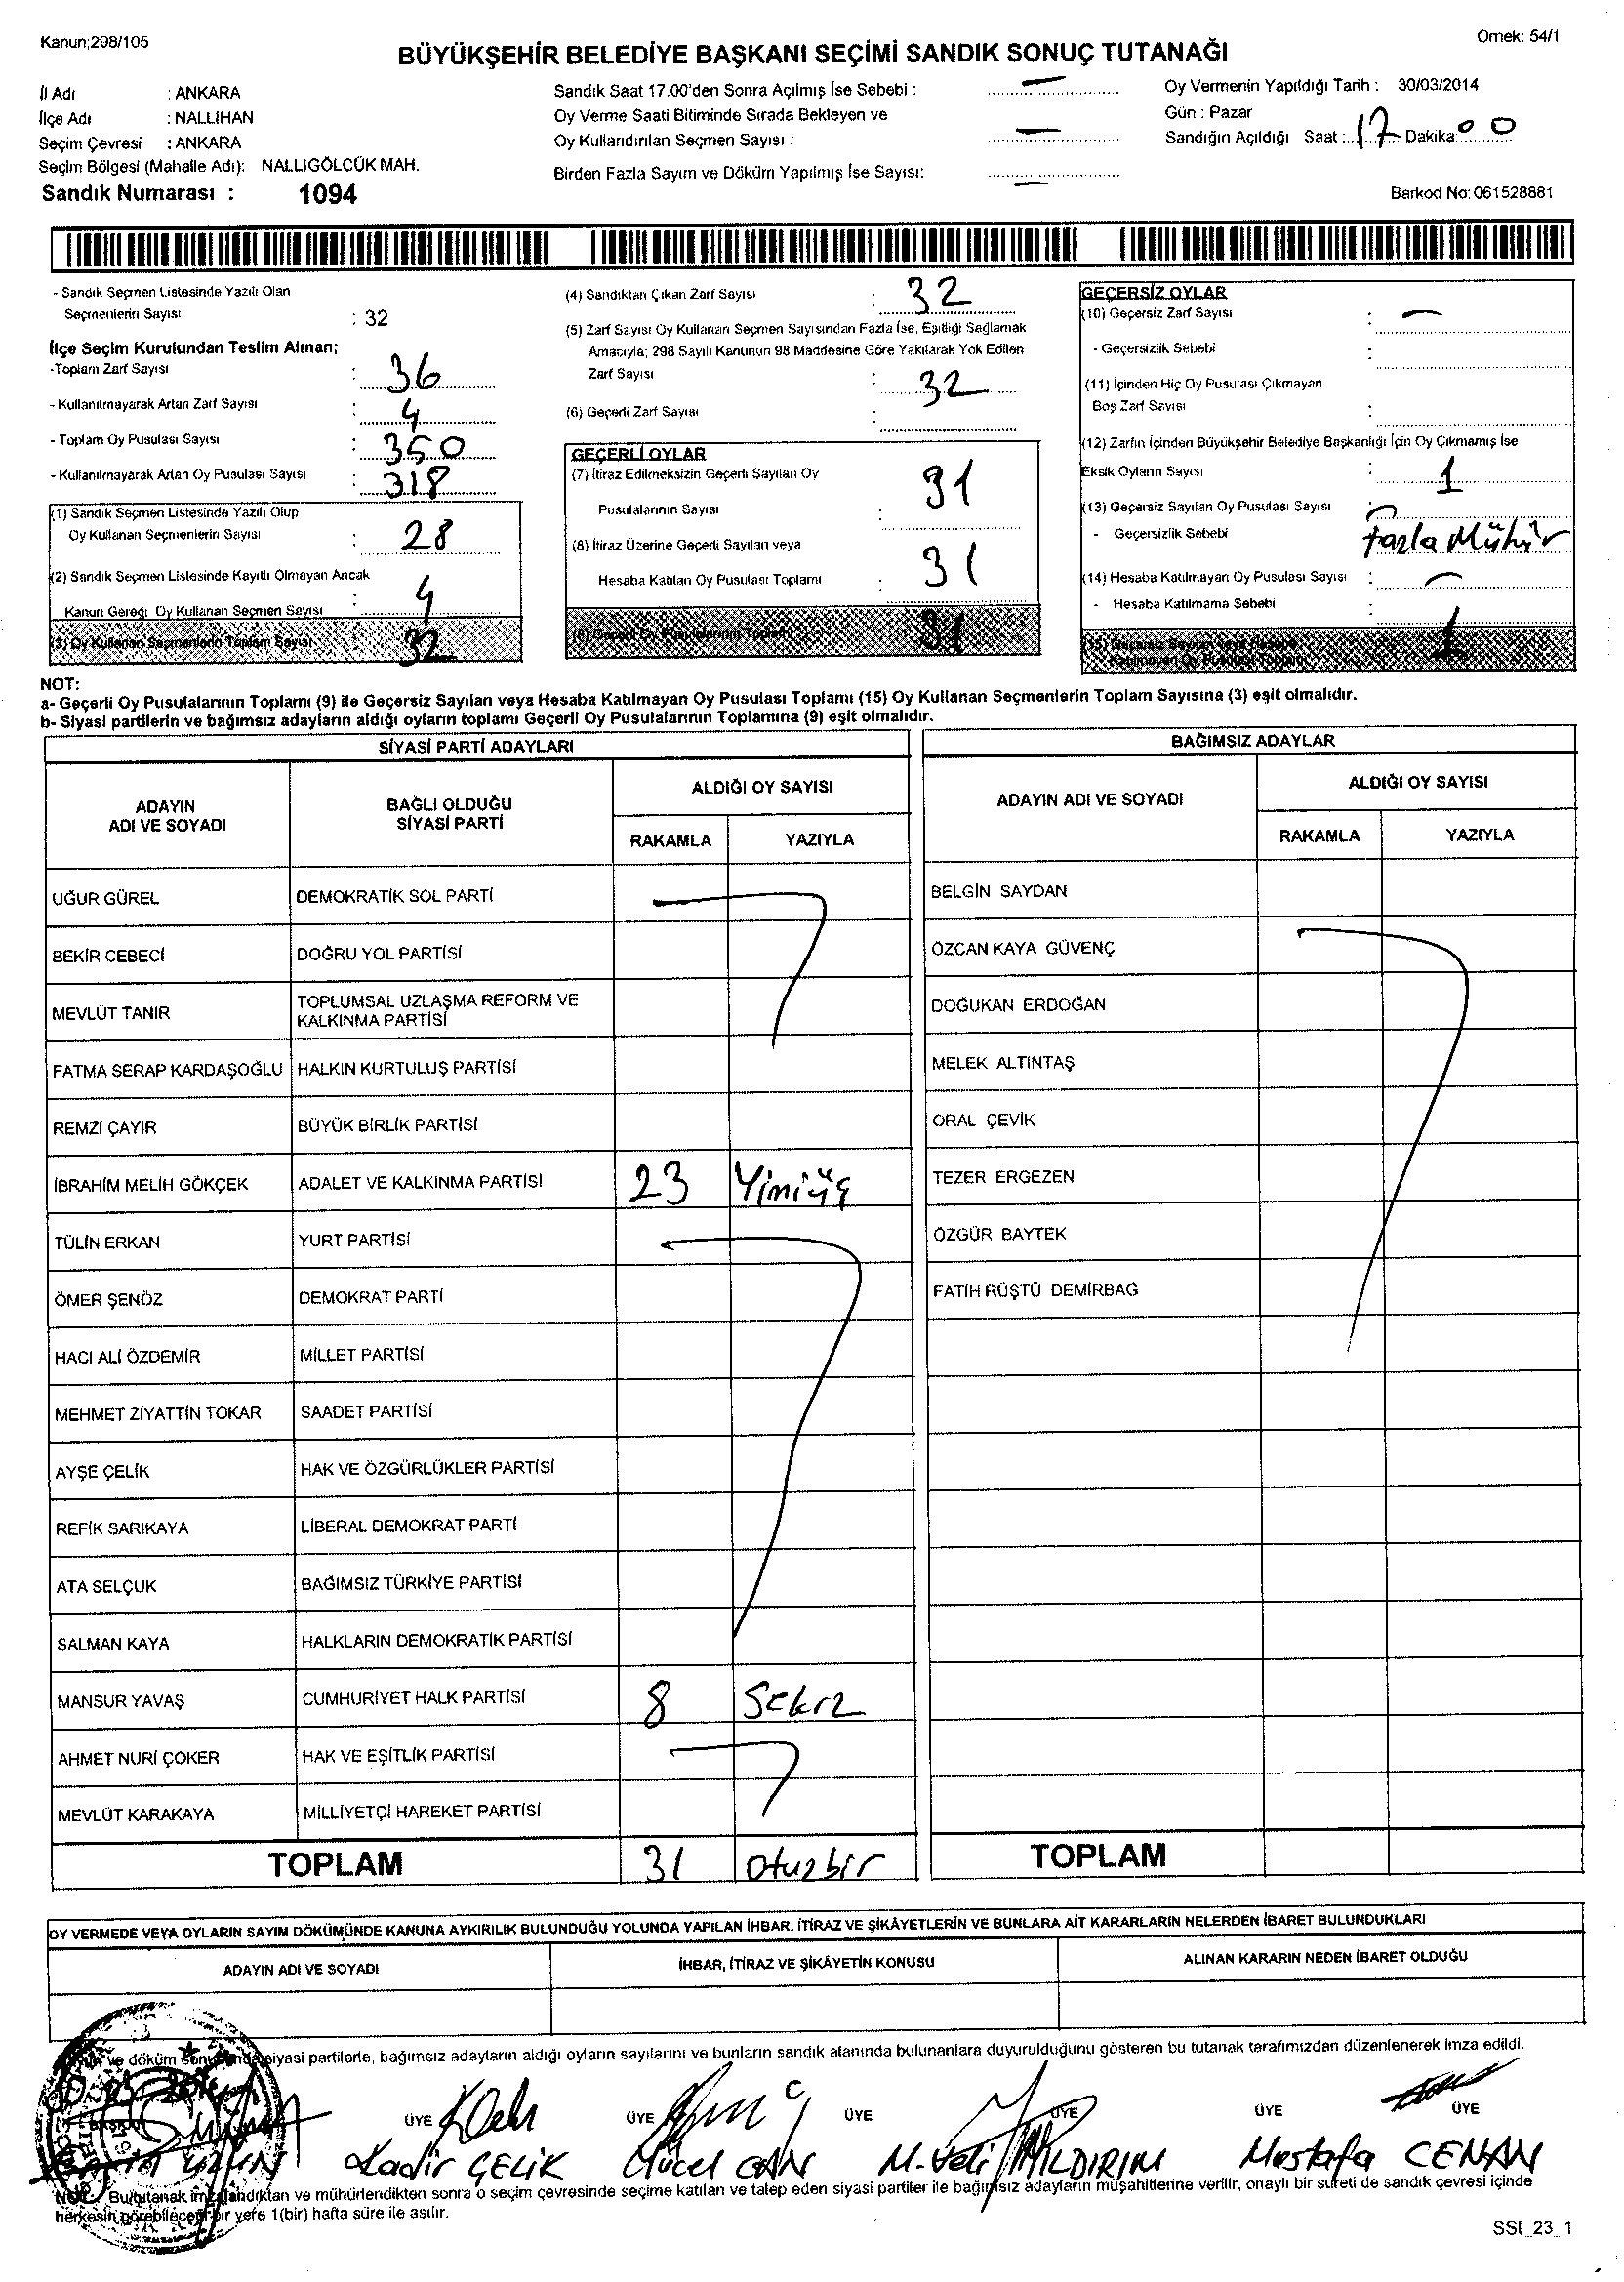 Kanun;298/105
Örnek: 54/1
BÜYÜKŞEHİR BELEDİYE BAŞKANI SEÇİMİ SANDIK SONUÇ TUTANAĞI
İl Adı : ANKARA
İlçe Adı : NALLIHAN
Seçim Çevresi : ANKARA
Seçim Bölgesi (Mahalle Adı): NALLIGÖLCÜK MAH.
Sandık Numarası : 1094
Sandık Saat 17.00'den Sonra Açılmış İse Sebebi : —
Oy Verme Saati Bitiminde Sırada Bekleyen ve
Oy Kullandırılan Seçmen Sayısı : —
Birden Fazla Sayım ve Döküm Yapılmış İse Sayısı: —
Oy Vermenin Yapıldığı Tarih : 30/03/2014
Gün : Pazar
Sandığın Açıldığı Saat : 17 Dakika: 00
Barkod No: 061528881
- Sandık Seçmen Listesinde Yazılı Olan
Seçmenlerin Sayısı : 32
İlçe Seçim Kurulundan Teslim Alınan;
-Toplam Zarf Sayısı : 36
- Kullanılmayarak Artan Zarf Sayısı : 4
- Toplam Oy Pusulası Sayısı : 350
- Kullanılmayarak Artan Oy Pusulası Sayısı : 318
(1) Sandık Seçmen Listesinde Yazılı Olup
Oy Kullanan Seçmenlerin Sayısı : 28
(2) Sandık Seçmen Listesinde Kayıtlı Olmayan Ancak
Kanun Gereği Oy Kullanan Seçmen Sayısı : 4
(3) Oy Kullanan Seçmenlerin Toplam Sayısı 32
(4) Sandıktan Çıkan Zarf Sayısı : 32
(5) Zarf Sayısı Oy Kullanan Seçmen Sayısından Fazla İse, Eşitliği Sağlamak
Amacıyla; 298 Sayılı Kanunun 98.Maddesine Göre Yakılarak Yok Edilen
Zarf Sayısı : 32
(6) Geçerli Zarf Sayısı :
GEÇERLİ OYLAR
(7) İtiraz Edilmeksizin Geçerli Sayılan Oy
Pusulalarının Sayısı : 31
(8) İtiraz Üzerine Geçerli Sayılan veya
Hesaba Katılan Oy Pusulası Toplamı : 31
(9) Geçerli Oy Pusulalarının Toplamı 31
GEÇERSİZ OYLAR
(10) Geçersiz Zarf Sayısı : —
- Geçersizlik Sebebi :
(11) İçinden Hiç Oy Pusulası Çıkmayan
Boş Zarf Sayısı :
(12) Zarfın İçinden Büyükşehir Belediye Başkanlığı İçin Oy Çıkmamış İse
Eksik Oyların Sayısı : 1
(13) Geçersiz Sayılan Oy Pusulası Sayısı : —
- Geçersizlik Sebebi : Fazla Mühür
(14) Hesaba Katılmayan Oy Pusulası Sayısı : —
- Hesaba Katılmama Sebebi :
(15) Geçersiz Sayılan veya Hesaba
Katılmayan Oy Pusulası Toplamı 1
NOT:
a- Geçerli Oy Pusulalarının Toplamı (9) ile Geçersiz Sayılan veya Hesaba Katılmayan Oy Pusulası Toplamı (15) Oy Kullanan Seçmenlerin Toplam Sayısına (3) eşit olmalıdır.
b- Siyasi partilerin ve bağımsız adayların aldığı oyların toplamı Geçerli Oy Pusulalarının Toplamına (9) eşit olmalıdır.
SİYASİ PARTİ ADAYLARI
ADAYIN ADI VE SOYADI BAĞLI OLDUĞU SİYASİ PARTİ ALDIĞI OY SAYISI
RAKAMLA YAZIYLA
UĞUR GÜREL DEMOKRATİK SOL PARTİ
BEKİR CEBECİ DOĞRU YOL PARTİSİ
MEVLÜT TANIR TOPLUMSAL UZLAŞMA REFORM VE KALKINMA PARTİSİ
FATMA SERAP KARDAŞOĞLU HALKIN KURTULUŞ PARTİSİ
REMZİ ÇAYIR BÜYÜK BİRLİK PARTİSİ
İBRAHİM MELİH GÖKÇEK ADALET VE KALKINMA PARTİSİ 23 Yimiüç
TÜLİN ERKAN YURT PARTİSİ
ÖMER ŞENÖZ DEMOKRAT PARTİ
HACI ALİ ÖZDEMİR MİLLET PARTİSİ
MEHMET ZİYATTİN TOKAR SAADET PARTİSİ
AYŞE ÇELİK HAK VE ÖZGÜRLÜKLER PARTİSİ
REFİK SARIKAYA LİBERAL DEMOKRAT PARTİ
ATA SELÇUK BAĞIMSIZ TÜRKİYE PARTİSİ
SALMAN KAYA HALKLARIN DEMOKRATİK PARTİSİ
MANSUR YAVAŞ CUMHURİYET HALK PARTİSİ 8 Sekiz
AHMET NURİ ÇOKER HAK VE EŞİTLİK PARTİSİ
MEVLÜT KARAKAYA MİLLİYETÇİ HAREKET PARTİSİ
TOPLAM 31 otuzbir
BAĞIMSIZ ADAYLAR
ADAYIN ADI VE SOYADI ALDIĞI OY SAYISI
RAKAMLA YAZIYLA
BELGİN SAYDAN
ÖZCAN KAYA GÜVENÇ
DOĞUKAN ERDOĞAN
MELEK ALTINTAŞ
ORAL ÇEVİK
TEZER ERGEZEN
ÖZGÜR BAYTEK
FATİH RÜŞTÜ DEMİRBAĞ
TOPLAM
OY VERMEDE VEYA OYLARIN SAYIM DÖKÜMÜNDE KANUNA AYKIRILIK BULUNDUĞU YOLUNDA YAPILAN İHBAR, İTİRAZ VE ŞİKÂYETLERİN VE BUNLARA AİT KARARLARIN NELERDEN İBARET BULUNDUKLARI
ADAYIN ADI VE SOYADI İHBAR, İTİRAZ VE ŞİKÂYETİN KONUSU ALINAN KARARIN NEDEN İBARET OLDUĞU
ve döküm sonucunda siyasi partilerle, bağımsız adayların aldığı oyların sayılarını ve bunların sandık alanında bulunanlara duyurulduğunu gösteren bu tutanak tarafımızdan düzenlenerek imza edildi.
BAŞKAN ÜYE ÜYE ÜYE ÜYE ÜYE ÜYE
Kadir ÇELİK Yücel CAN M. Veli YILDIRIM Mustafa CENAN
NOT: Bu tutanak imzalandıktan ve mühürlendikten sonra o seçim çevresinde seçime katılan ve talep eden siyasi partiler ile bağımsız adayların müşahitlerine verilir, onaylı bir sureti de sandık çevresi içinde
herkesin görebileceği bir yere 1(bir) hafta süre ile asılır.
SSI_23_1